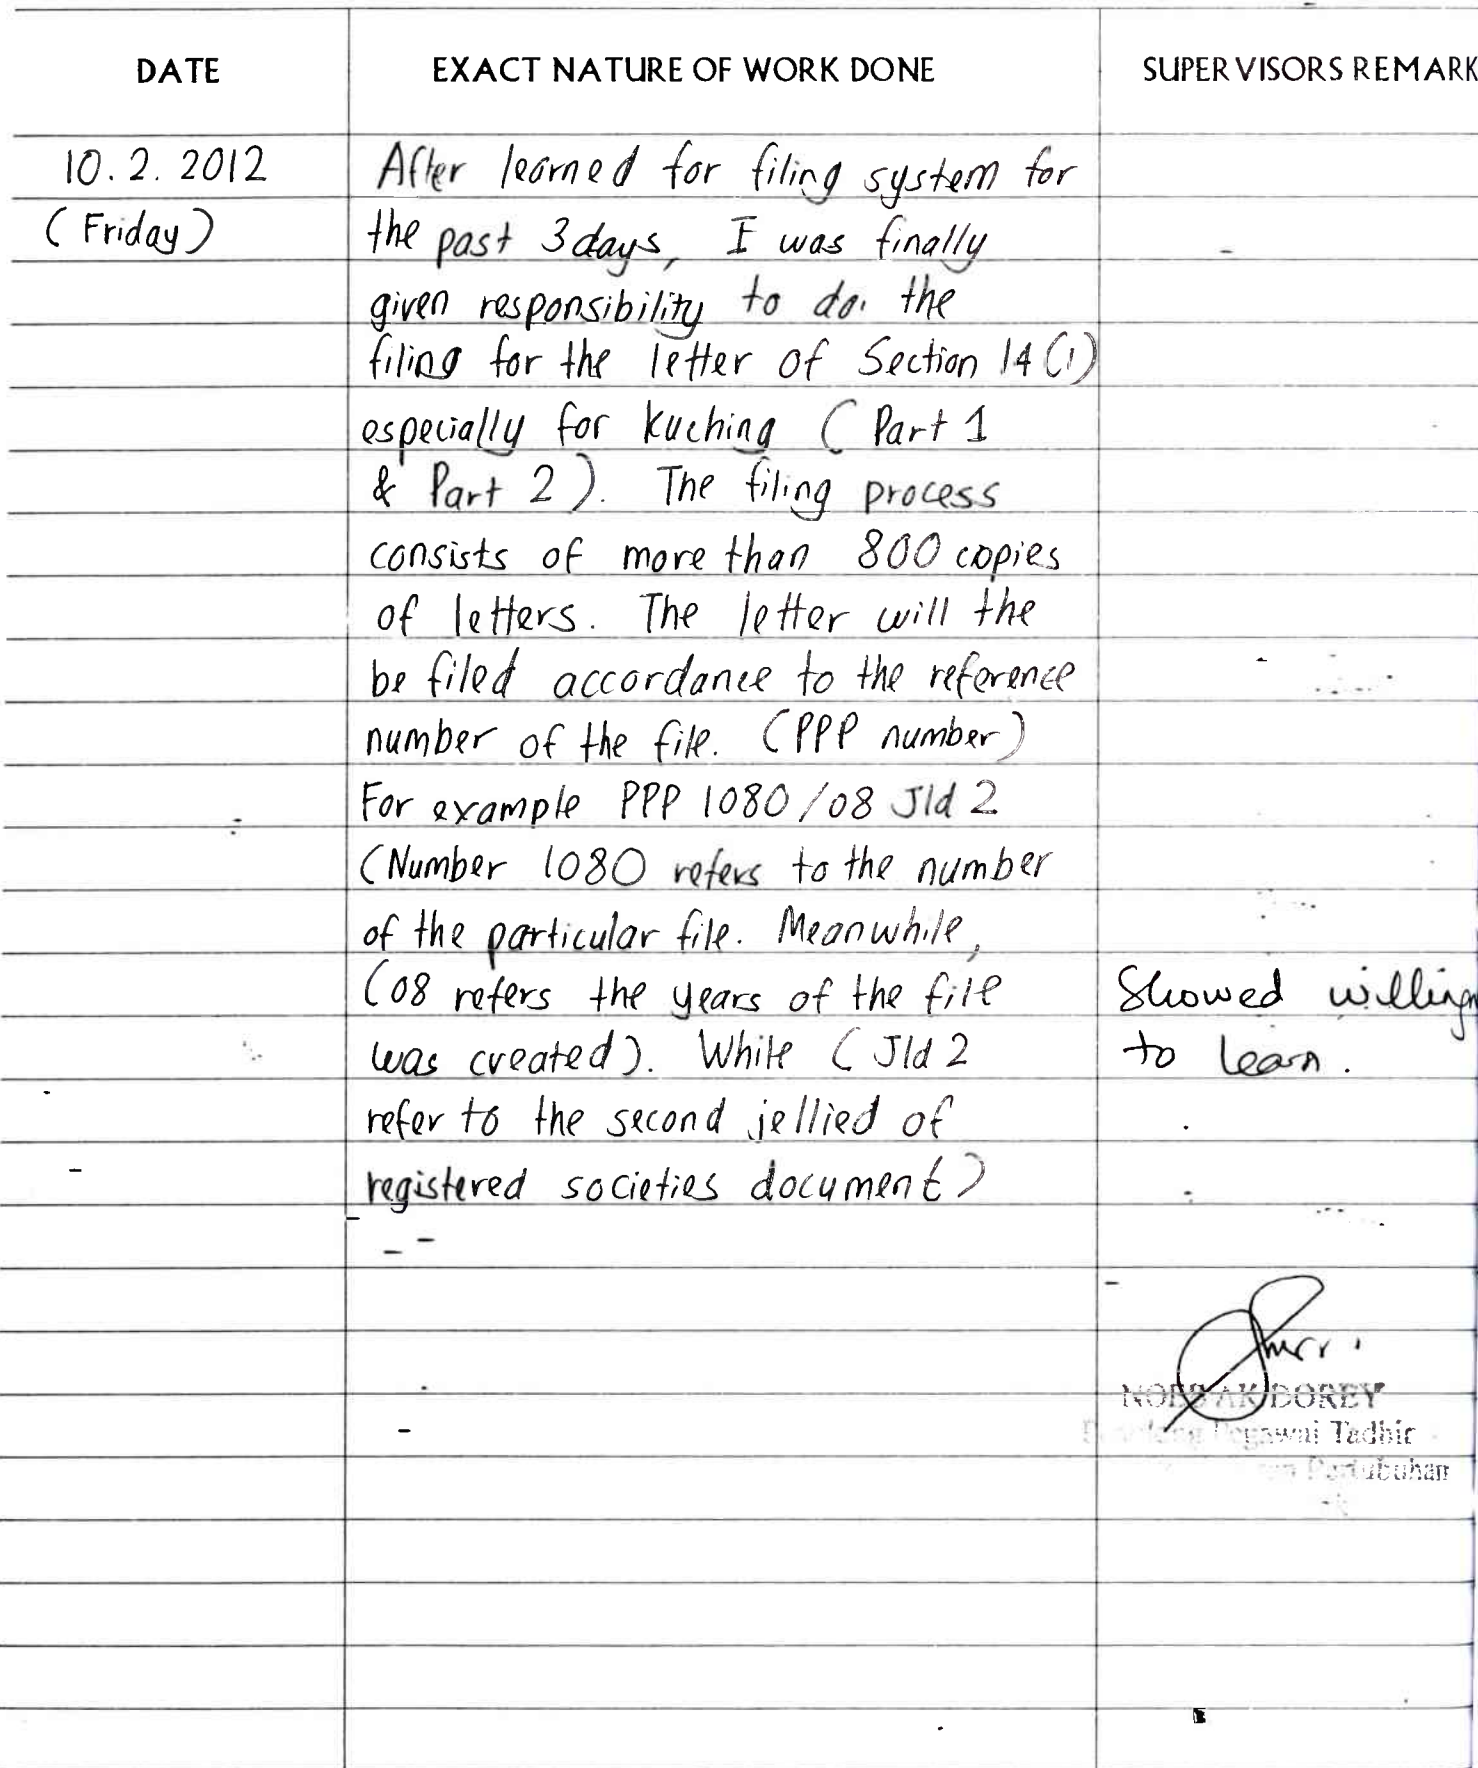 DATE EXACT NATURE OF WORK DONE SUPERVISORS REMARK
10.2.2012 After learned for filing system for
(Friday) the past 3 days, I was finally
given responsibility to do the
filing for the letter of Section 14 (1)
especially for Kuching (Part 1
& Part 2). The filing process
consists of more than 800 copies
of letters. The letter will the
be filed accordance to the reference
number of the file. (PPP number)
For example PPP 1080/08 Jld 2
(Number 1080 refers to the number
of the particular file. Meanwhile,
(08 refers the years of the file Showed willingn
was created). While (Jld 2 to learn.
refer to the second jellied of
registered societies document)
AK DOREY
Pegawai Tadbir
Pertubuhan